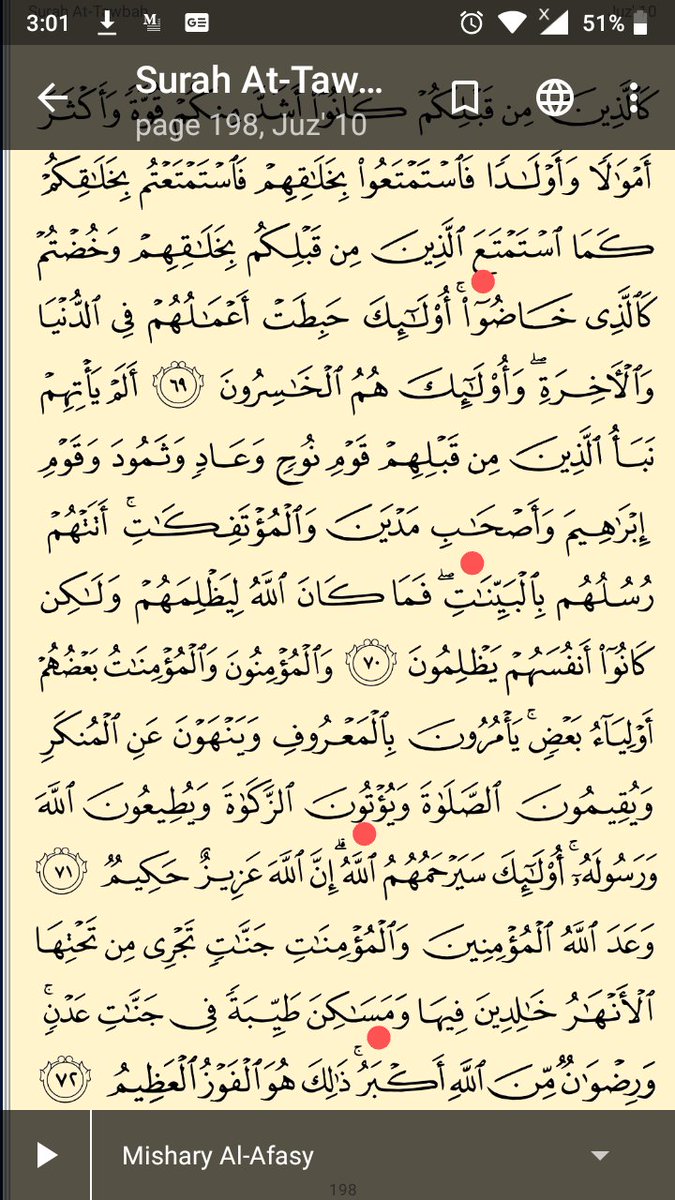 3:01
51%
Surah At-Taw...
page 198, Juz' 10
كَٱلَّذِينَ مِن قَبْلِكُمْ كَانُوٓا۟ أَشَدَّ مِنكُمْ قُوَّةً وَأَكْثَرَ
أَمْوَٰلًا وَأَوْلَـٰدًا فَٱسْتَمْتَعُوا۟ بِخَلَـٰقِهِمْ فَٱسْتَمْتَعْتُم بِخَلَـٰقِكُمْ
كَمَا ٱسْتَمْتَعَ ٱلَّذِينَ مِن قَبْلِكُم بِخَلَـٰقِهِمْ وَخُضْتُمْ
كَٱلَّذِى خَاضُوٓا۟ ۚ أُو۟لَـٰٓئِكَ حَبِطَتْ أَعْمَـٰلُهُمْ فِى ٱلدُّنْيَا
وَٱلْـَٔاخِرَةِ ۖ وَأُو۟لَـٰٓئِكَ هُمُ ٱلْخَـٰسِرُونَ ٦٩ أَلَمْ يَأْتِهِمْ
نَبَأُ ٱلَّذِينَ مِن قَبْلِهِمْ قَوْمِ نُوحٍ وَعَادٍ وَثَمُودَ وَقَوْمِ
إِبْرَٰهِيمَ وَأَصْحَـٰبِ مَدْيَنَ وَٱلْمُؤْتَفِكَـٰتِ ۚ أَتَتْهُمْ
رُسُلُهُم بِٱلْبَيِّنَـٰتِ ۖ فَمَا كَانَ ٱللَّهُ لِيَظْلِمَهُمْ وَلَـٰكِن
كَانُوٓا۟ أَنفُسَهُمْ يَظْلِمُونَ ٧٠ وَٱلْمُؤْمِنُونَ وَٱلْمُؤْمِنَـٰتُ بَعْضُهُمْ
أَوْلِيَآءُ بَعْضٍ ۚ يَأْمُرُونَ بِٱلْمَعْرُوفِ وَيَنْهَوْنَ عَنِ ٱلْمُنكَرِ
وَيُقِيمُونَ ٱلصَّلَوٰةَ وَيُؤْتُونَ ٱلزَّكَوٰةَ وَيُطِيعُونَ ٱللَّهَ
وَرَسُولَهُۥٓ ۚ أُو۟لَـٰٓئِكَ سَيَرْحَمُهُمُ ٱللَّهُ ۗ إِنَّ ٱللَّهَ عَزِيزٌ حَكِيمٌ ٧١
وَعَدَ ٱللَّهُ ٱلْمُؤْمِنِينَ وَٱلْمُؤْمِنَـٰتِ جَنَّـٰتٍ تَجْرِى مِن تَحْتِهَا
ٱلْأَنْهَـٰرُ خَـٰلِدِينَ فِيهَا وَمَسَـٰكِنَ طَيِّبَةً فِى جَنَّـٰتِ عَدْنٍ ۚ
وَرِضْوَٰنٌ مِّنَ ٱللَّهِ أَكْبَرُ ۚ ذَٰلِكَ هُوَ ٱلْفَوْزُ ٱلْعَظِيمُ ٧٢
Mishary Al-Afasy
198